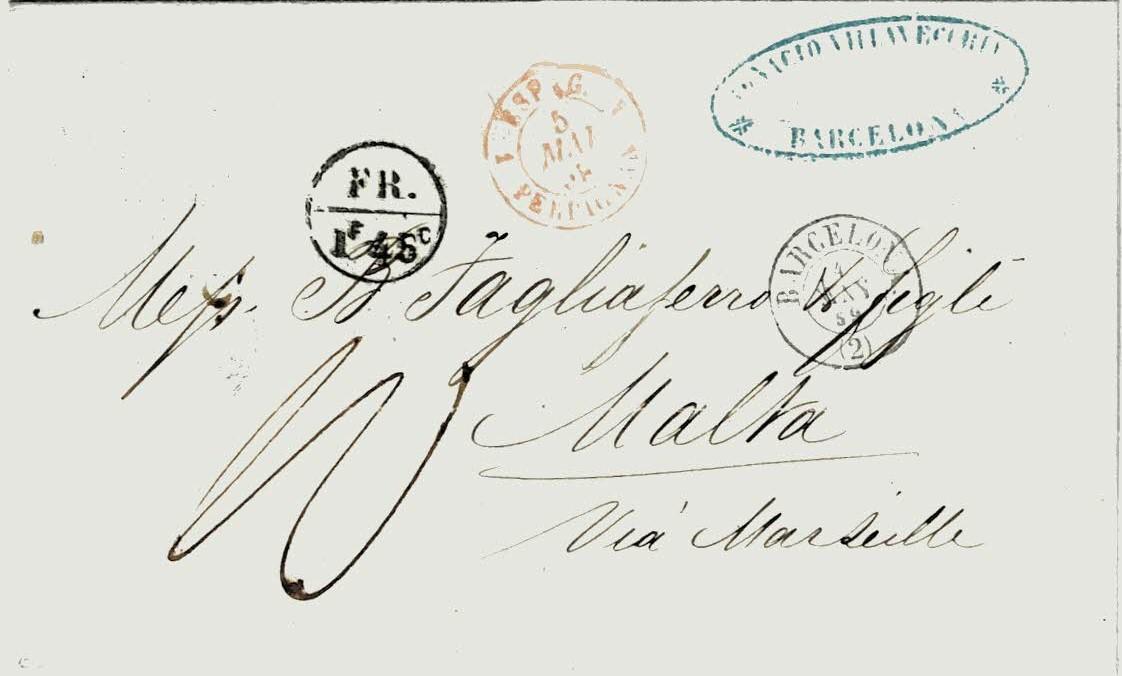 IGNACIO VILLAVECCHIA
BARCELONA
ESPAG.
5
MAI
PERPIGNAN
FR.
1F 45C
BARCELONA
4
MAY
(2)
Mess. B Tagliaferro & figli
Malta
Viá Marseille